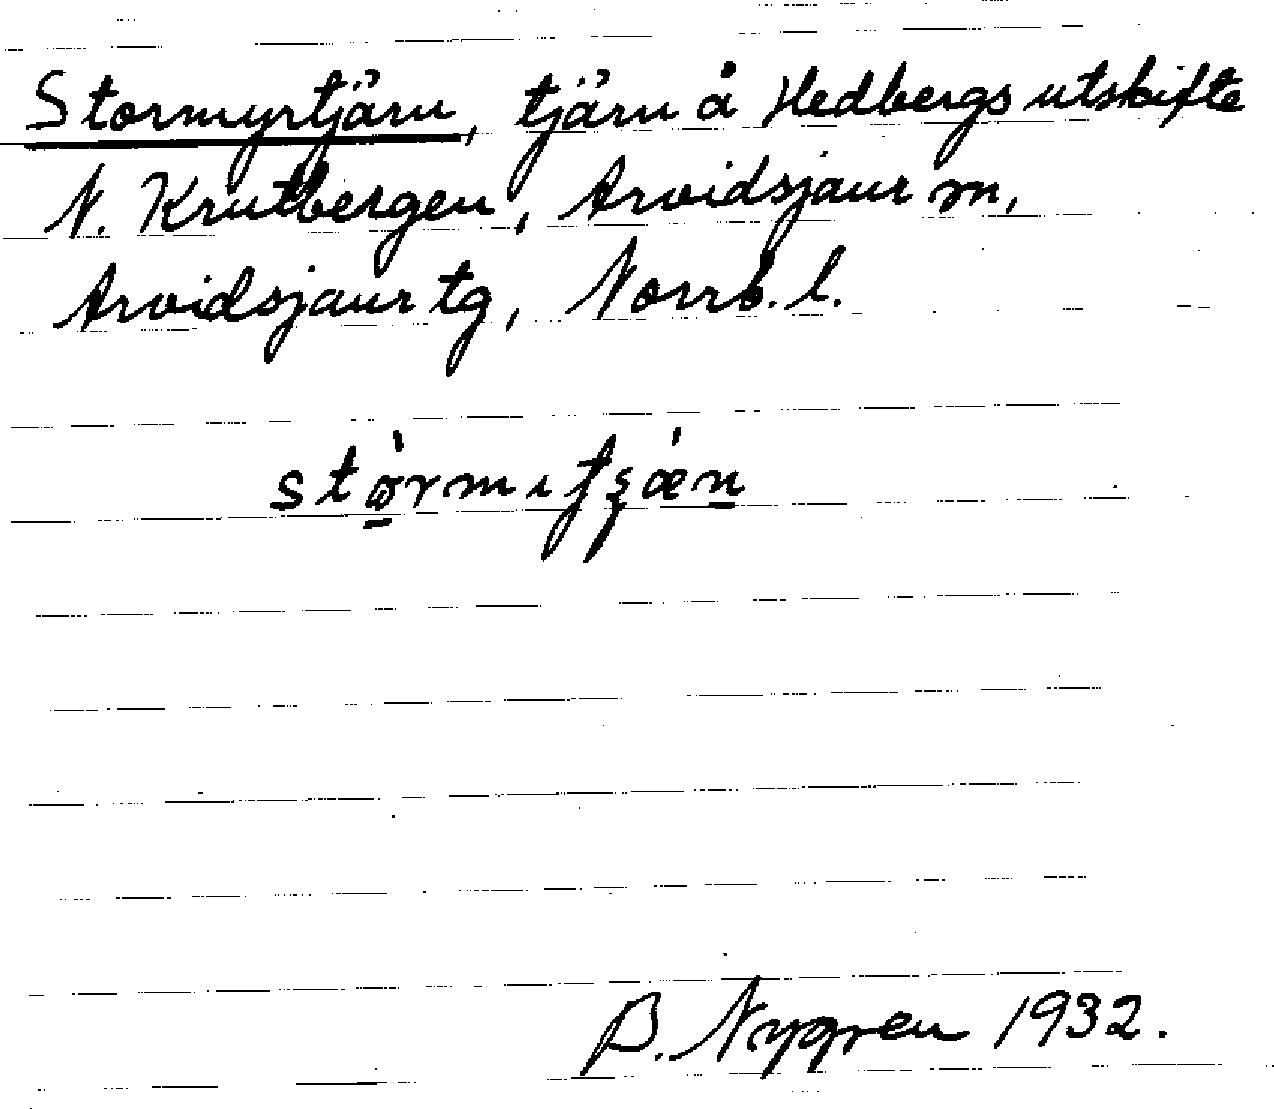 Stormyrtjärn, tjärn å Hedbergs utskifte
N. Krutbergen, Arvidsjaur sn,
Arvidsjaur tg, Norrb. l.
B. Nygren 1932.